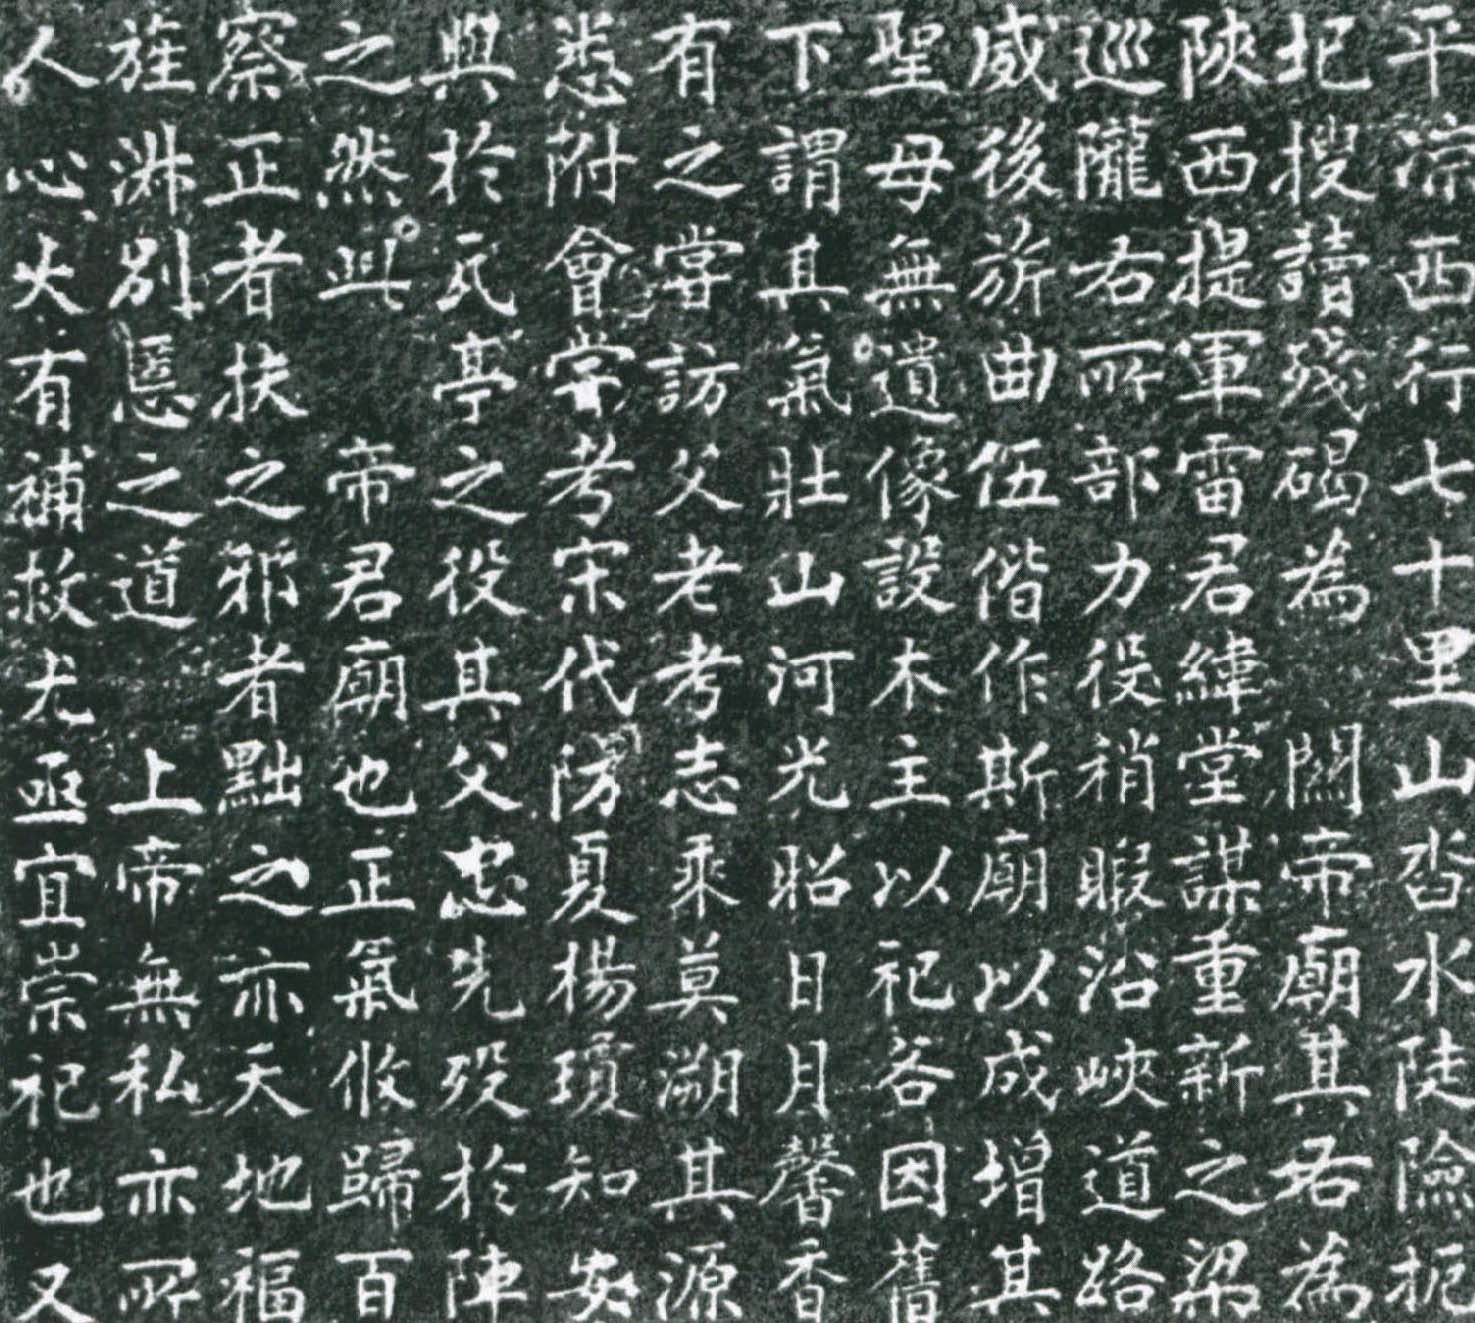 平涼西行七十里山沓水陡險扼
圯搜讀殘碣為關帝廟其右為
陝西提軍雷君緯堂謀重新之梁
巡隴右所部力役稍暇沿峽道路
威後旂曲伍偕作斯廟以成增其
聖母無遺像設木主以祀各因舊
下謂其氣壯山河光昭日月馨香
有之嘗訪父老考志乘莫溯其源
悉附會嘗考宋代陽夏楊瓊知安
與於瓦亭之役其父忠先歿於陣
之然此帝君廟也正氣攸歸百
察正者扶之邪者黜之亦天地福
旌淋別慝之道上帝無私亦所
人心大有補救尤亟宜崇祀也又